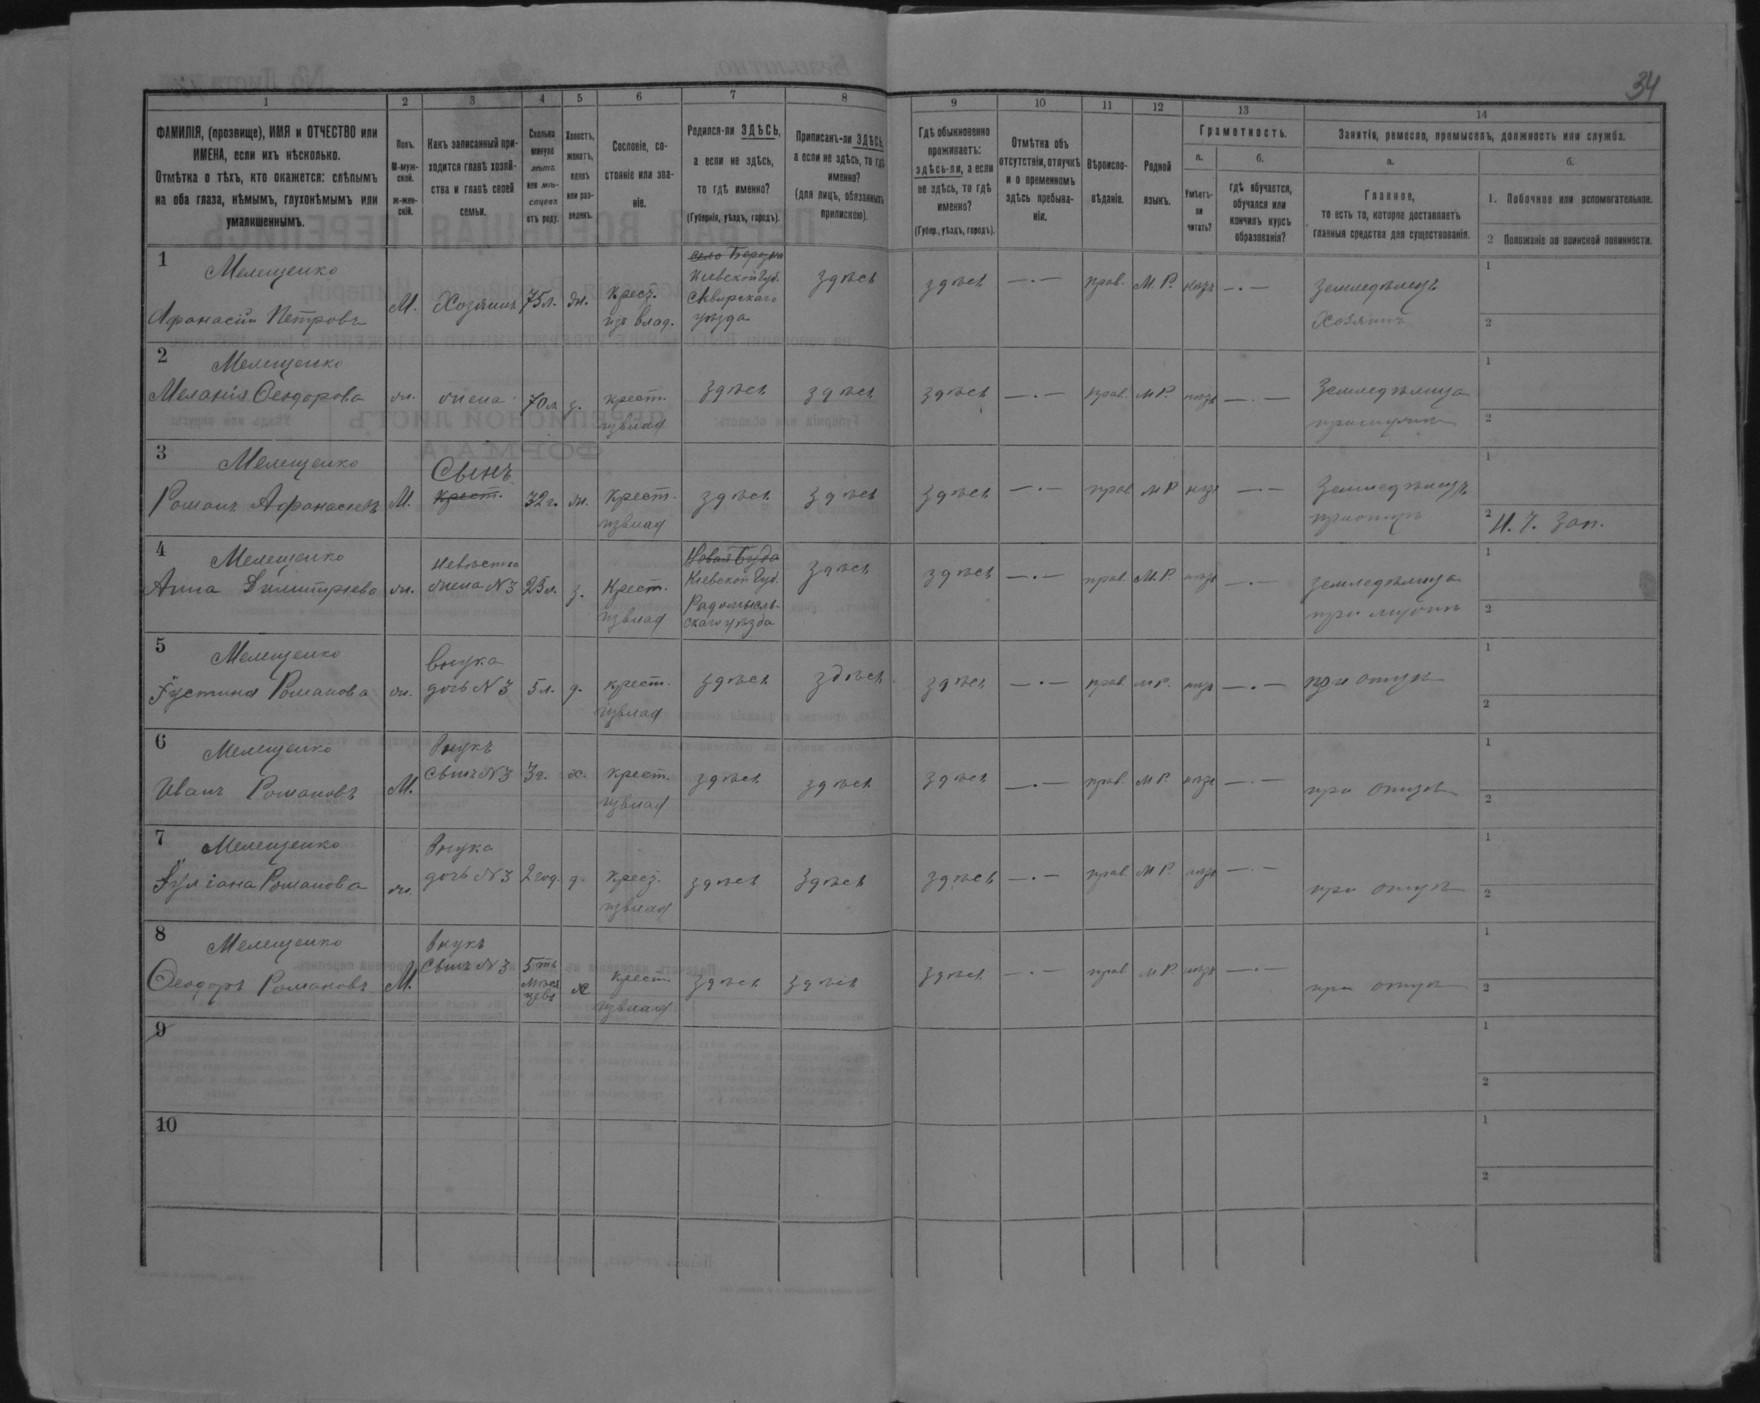 34
1
2
3
4
5
6
7
8
9
10
11
12
13
14
ФАМИЛІЯ, (прозвище), ИМЯ и ОТЧЕСТВО или
ИМЕНА, если ихъ нѣсколько.
Отмѣтка о тѣхъ, кто окажется: слѣпымъ
на оба глаза, нѣмымъ, глухонѣмымъ или
умалишеннымъ.
Полъ.
М-муж-
ской.
ж-жен-
скій.
Какъ записанный при-
ходится главѣ хозяй-
ства и главѣ своей
семьи.
Сколько
минуло
лѣтъ
или мѣ-
сяцевъ
отъ роду.
Холостъ,
женатъ,
вдовъ
или раз-
веденъ.
Сословіе, со-
стояніе или зва-
ніе.
Родился-ли ЗДѢСЬ,
а если не здѣсь,
то гдѣ именно?
(Губернія, уѣздъ, городъ).
Приписанъ-ли ЗДѢСЬ,
а если не здѣсь, то гдѣ
именно?
(для лицъ, обязанныхъ
припискою).
Гдѣ обыкновенно
проживаетъ:
здѣсь-ли, а если
не здѣсь, то гдѣ
именно?
(Губер., уѣздъ, городъ).
Отмѣтка объ
отсутствіи, отлучкѣ
и о временномъ
здѣсь пребыва-
ніи.
Вѣроиспо-
вѣданіе.
Родной
языкъ.
Грамотность.
а.
Умѣетъ-
ли
читать?
б.
гдѣ обучается,
обучался или
кончилъ курсъ
образованія?
Занятія, ремесло, промыселъ, должность или служба.
а.
Главное,
то есть то, которое доставляетъ
главныя средства для существованія.
б.
1. Побочное или вспомогательное.
2 Положеніе по воинской повинности.
1
Мелещенко
Афанасій Петровъ
М. Хозяинъ 75 л. ж. Крест.
изъ влад.
Кіевской Губ.
Сквирскаго
уѣзда
здѣсь здѣсь —·— прав. М.Р. —·— Земледѣлецъ
Хозяинъ
1
2
2
Мелещенко
Меланія Ѳеодорова
ж. жена 70 л. з. крест.
извлад
здѣсь здѣсь здѣсь —·— прав. М.Р. —·— Земледѣлица
1
2
3
Мелещенко
Романъ Афанасіевъ
М. Сынъ
крест.
32 г. ж. крест.
извлад
здѣсь здѣсь здѣсь —·— прав М Р —·— Земледѣлецъ
1
2 И. Ч. Зап.
4
Мелещенко
Анна Димитріева
ж. невѣстка
жена N 3 25 л. з. Крест.
извлад
Новая Буда
Кіевской Губ.
Радомысль-
скаго уѣзда
здѣсь здѣсь —·— прав. М.Р. —·— земледѣлица
1
2
5
Мелещенко
Іустина Романова
ж. внука
дочь N 3 5 л. д. крест.
извлад
здѣсь здѣсь здѣсь —·— прав М Р. —·— при отцѣ
1
2
6
Мелещенко
Иванъ Романовъ
М. Внукъ
сынъ N 3 3 г. х. крест.
извлад
здѣсь здѣсь здѣсь —·— прав. М Р. —·— при отцѣ
1
2
7
Мелещенко
Іуліана Романова
ж. Внука
дочь N 3 2 год. д. Крест.
извлад
здѣсь здѣсь здѣсь —·— прав М Р. —·— при отцѣ
1
2
8
Мелещенко
Ѳеодоръ Романовъ
М. Внукъ
Сынъ N 3 5ть
мѣся
цевъ
х крест
извлад
здѣсь здѣсь здѣсь —·— прав М Р. —·— при отцѣ
1
2
9
1
2
10
1
2